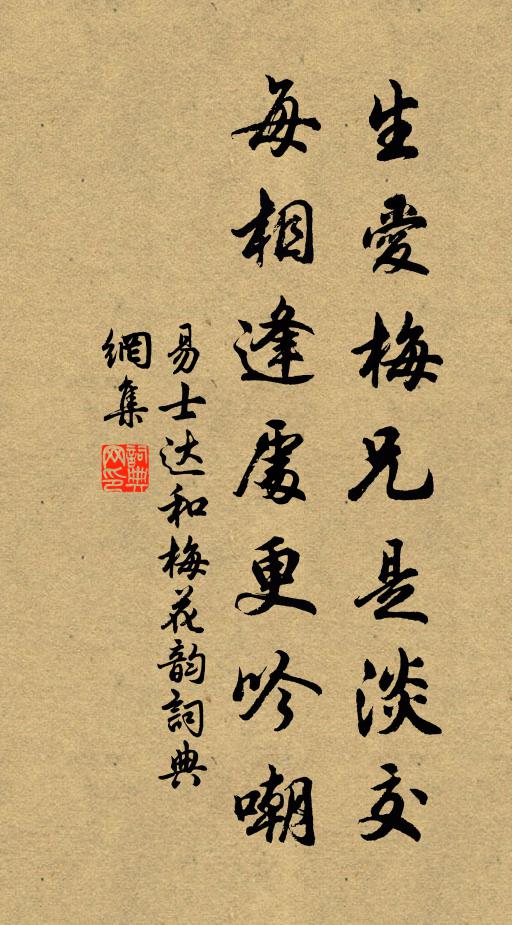 生愛梅兄是淡交
每相逢處更吟嘲
易士达和梅花韵詞典
網集
詞典网印